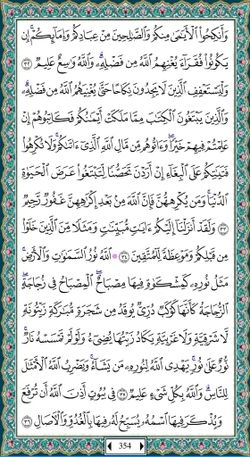 وَأَنكِحُوا۟ ٱلْأَيَـٰمَىٰ مِنكُمْ وَٱلصَّـٰلِحِينَ مِنْ عِبَادِكُمْ وَإِمَآئِكُمْ ۚ إِن
يَكُونُوا۟ فُقَرَآءَ يُغْنِهِمُ ٱللَّهُ مِن فَضْلِهِۦ ۗ وَٱللَّهُ وَٰسِعٌ عَلِيمٌ ٣٢
وَلْيَسْتَعْفِفِ ٱلَّذِينَ لَا يَجِدُونَ نِكَاحًا حَتَّىٰ يُغْنِيَهُمُ ٱللَّهُ مِن فَضْلِهِۦ ۗ
وَٱلَّذِينَ يَبْتَغُونَ ٱلْكِتَـٰبَ مِمَّا مَلَكَتْ أَيْمَـٰنُكُمْ فَكَاتِبُوهُمْ إِنْ
عَلِمْتُمْ فِيهِمْ خَيْرًا ۖ وَءَاتُوهُم مِّن مَّالِ ٱللَّهِ ٱلَّذِىٓ ءَاتَىٰكُمْ ۚ وَلَا تُكْرِهُوا۟
فَتَيَـٰتِكُمْ عَلَى ٱلْبِغَآءِ إِنْ أَرَدْنَ تَحَصُّنًا لِّتَبْتَغُوا۟ عَرَضَ ٱلْحَيَوٰةِ
ٱلدُّنْيَا ۚ وَمَن يُكْرِههُّنَّ فَإِنَّ ٱللَّهَ مِنۢ بَعْدِ إِكْرَٰهِهِنَّ غَفُورٌ رَّحِيمٌ
٣٣ وَلَقَدْ أَنزَلْنَآ إِلَيْكُمْ ءَايَـٰتٍ مُّبَيِّنَـٰتٍ وَمَثَلًا مِّنَ ٱلَّذِينَ خَلَوْا۟
مِن قَبْلِكُمْ وَمَوْعِظَةً لِّلْمُتَّقِينَ ٣٤ ۞ ٱللَّهُ نُورُ ٱلسَّمَـٰوَٰتِ وَٱلْأَرْضِ ۚ
مَثَلُ نُورِهِۦ كَمِشْكَوٰةٍ فِيهَا مِصْبَاحٌ ۖ ٱلْمِصْبَاحُ فِى زُجَاجَةٍ ۖ
ٱلزُّجَاجَةُ كَأَنَّهَا كَوْكَبٌ دُرِّىٌّ يُوقَدُ مِن شَجَرَةٍ مُّبَـٰرَكَةٍ زَيْتُونَةٍ
لَّا شَرْقِيَّةٍ وَلَا غَرْبِيَّةٍ يَكَادُ زَيْتُهَا يُضِىٓءُ وَلَوْ لَمْ تَمْسَسْهُ نَارٌ ۚ
نُّورٌ عَلَىٰ نُورٍ ۗ يَهْدِى ٱللَّهُ لِنُورِهِۦ مَن يَشَآءُ ۚ وَيَضْرِبُ ٱللَّهُ ٱلْأَمْثَـٰلَ
لِلنَّاسِ ۗ وَٱللَّهُ بِكُلِّ شَىْءٍ عَلِيمٌ ٣٥ فِى بُيُوتٍ أَذِنَ ٱللَّهُ أَن تُرْفَعَ
وَيُذْكَرَ فِيهَا ٱسْمُهُۥ يُسَبِّحُ لَهُۥ فِيهَا بِٱلْغُدُوِّ وَٱلْـَٔاصَالِ ٣٦
354